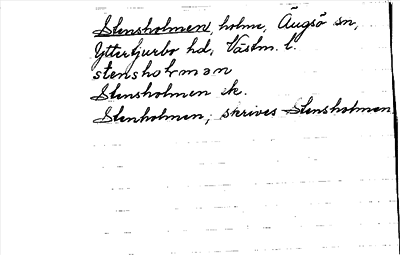 Stensholmen, holme, Ängsö sn,
Yttertjurbo hd, Västm. l.
stenshọlmən
Stensholmen ek.
Stenholmen, skrives Stensholmen